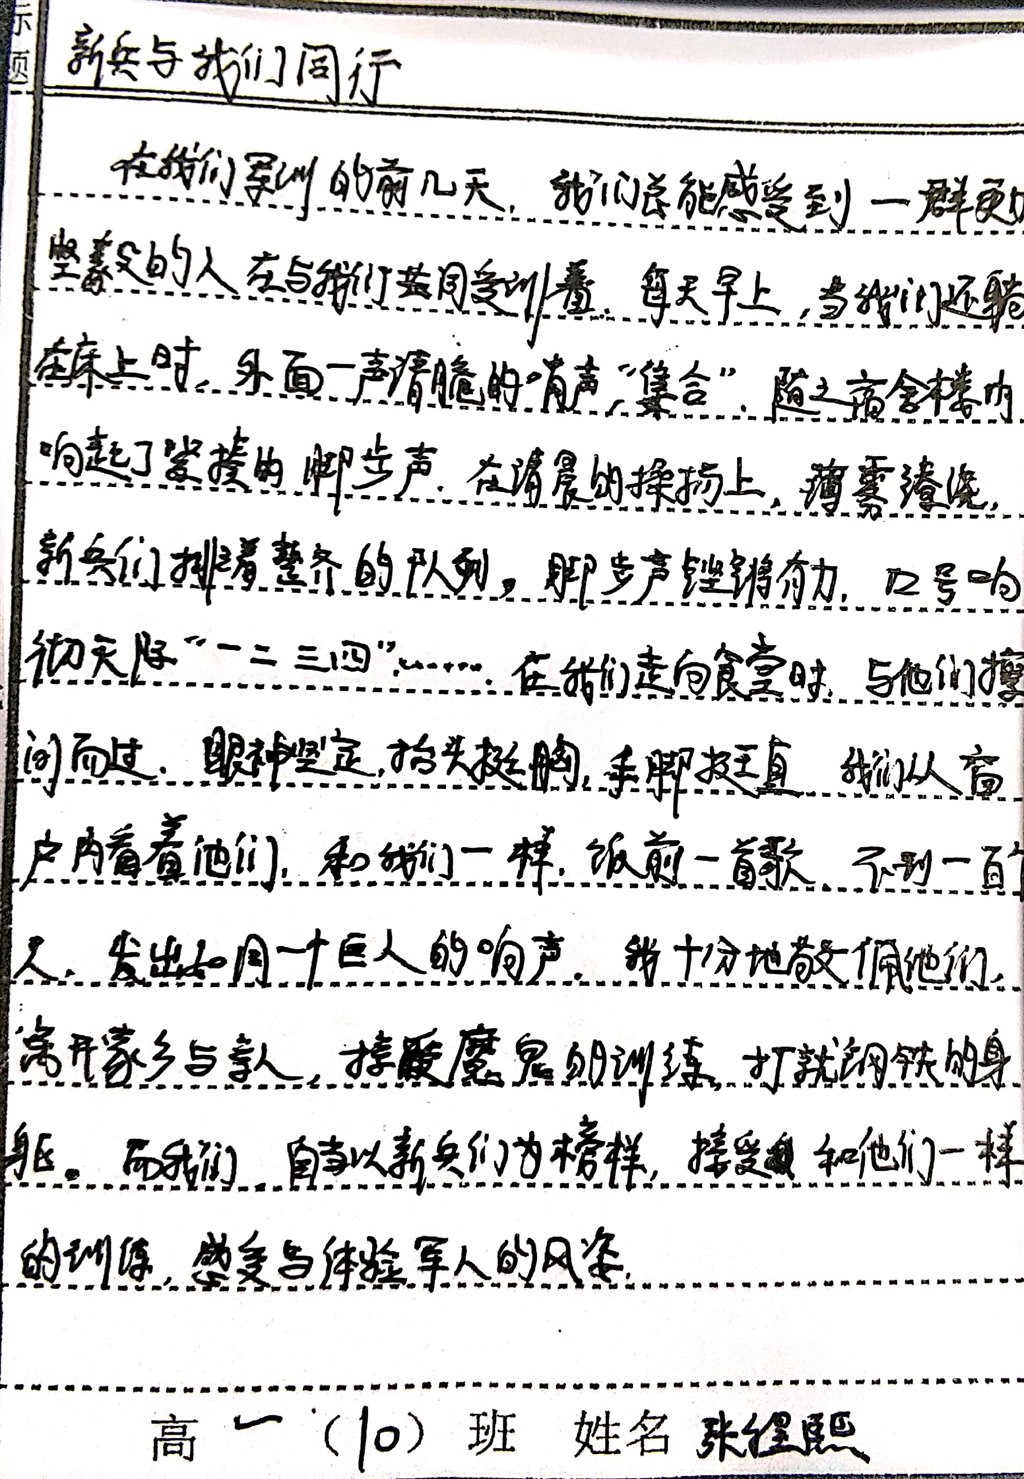 标题
新兵与我们同行
在我们军训的前几天，我们总能感受到一群更加
坚毅的人在与我们共同受训着．每天早上，当我们还躺
在床上时，外面一声清脆的哨声，“集合”．随之宿舍楼内
响起了紧揍的脚步声．在清晨的操场上，薄雾缭绕，
新兵们排着整齐的队列。脚步声铿锵有力．口号响
彻天际“一二三四”……．在我们走向食堂时，与他们擦
间而过．眼神坚定，抬头挺胸，手脚挺直 我们从窗
户内看着他们，和我们一样，饭前一首歌．不到一百个
人，发出如同一个巨人的响声．我十分地敬佩他们，
离开家乡与亲人，接受魔鬼的训练，打就钢铁的身
躯。而我们，自当以新兵们为榜样，接受和他们一样
的训练，感受与体验军人的风姿．
高一（10）班 姓名 张熙